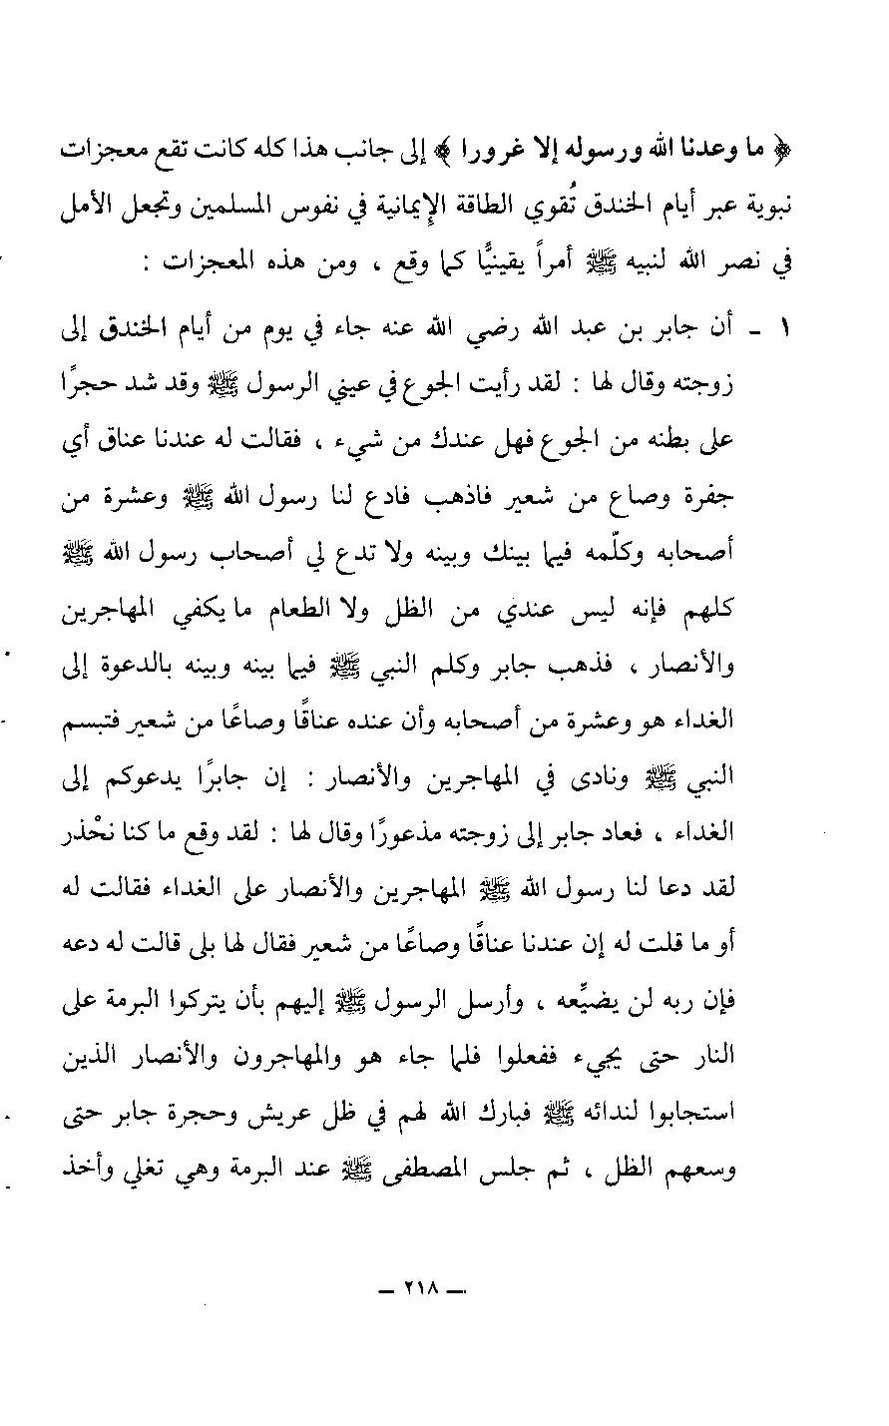 ﴿ ما وعدنا الله ورسوله إلا غرورا ﴾ إلى جانب هذا كله كانت تقع معجزات
نبوية عبر أيام الخندق تُقوي الطاقة الإيمانية في نفوس المسلمين وتجعل الأمل
في نصر الله لنبيه ﷺ أمراً يقينيًّا كما وقع ، ومن هذه المعجزات :
١ ـ أن جابر بن عبد الله رضي الله عنه جاء في يوم من أيام الخندق إلى
زوجته وقال لها : لقد رأيت الجوع في عيني الرسول ﷺ وقد شد حجرًا
على بطنه من الجوع فهل عندك من شيء ، فقالت له عندنا عناق أي
جفرة وصاع من شعير فاذهب فادع لنا رسول الله ﷺ وعشرة من
أصحابه وكلّمه فيما بينك وبينه ولا تدع لي أصحاب رسول الله ﷺ
كلهم فإنه ليس عندي من الظل ولا الطعام ما يكفي المهاجرين
والأنصار ، فذهب جابر وكلم النبي ﷺ فيما بينه وبينه بالدعوة إلى
الغداء هو وعشرة من أصحابه وأن عنده عناقًا وصاعًا من شعير فتبسم
النبي ﷺ ونادى في المهاجرين والأنصار : إن جابرًا يدعوكم إلى
الغداء ، فعاد جابر إلى زوجته مذعورًا وقال لها : لقد وقع ما كنا نحْذر
لقد دعا لنا رسول الله ﷺ المهاجرين والأنصار على الغداء فقالت له
أو ما قلت له إن عندنا عناقًا وصاعًا من شعير فقال لها بلى قالت له دعه
فإن ربه لن يضيِّعه ، وأرسل الرسول ﷺ إليهم بأن يتركوا البرمة على
النار حتى يجيء ففعلوا فلما جاء هو والمهاجرون والأنصار الذين
استجابوا لندائه ﷺ فبارك الله لهم في ظل عريش وحجرة جابر حتى
وسعهم الظل ، ثم جلس المصطفى ﷺ عند البرمة وهي تغلي وأخذ
ـ ٢١٨ ـ